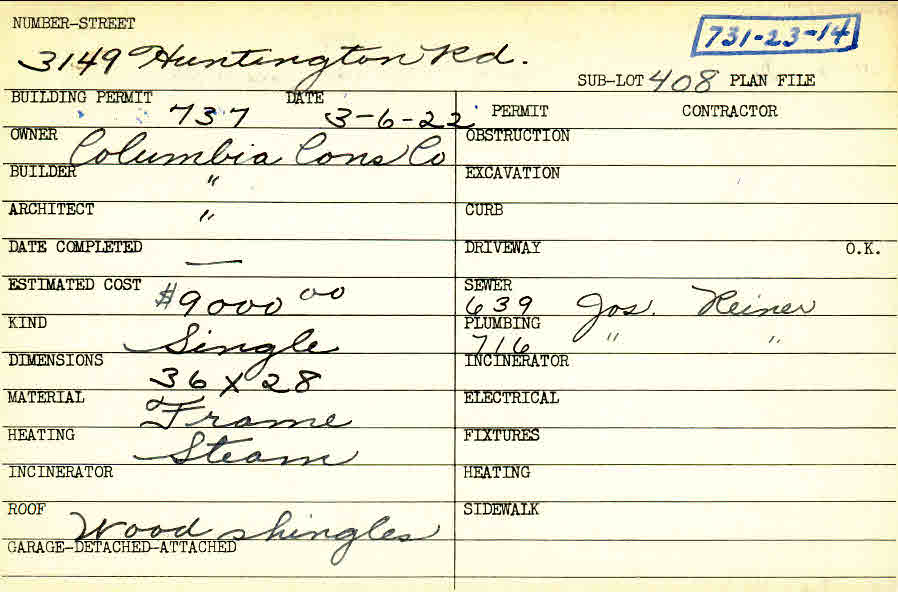 NUMBER-STREET
731-23-14
3149 Huntington Rd.
SUB-LOT 408 PLAN FILE
BUILDING PERMIT 737 DATE 3-6-22
PERMIT CONTRACTOR
OWNER Columbia Cons Co
OBSTRUCTION
BUILDER "
EXCAVATION
ARCHITECT "
CURB
DATE COMPLETED —
DRIVEWAY O.K.
ESTIMATED COST $9000 00
SEWER 639 Jos. Reiner
KIND Single
PLUMBING 716 " "
DIMENSIONS 36 x 28
INCINERATOR
MATERIAL Frame
ELECTRICAL
HEATING Steam
FIXTURES
INCINERATOR
HEATING
ROOF Wood shingles
SIDEWALK
GARAGE-DETACHED-ATTACHED